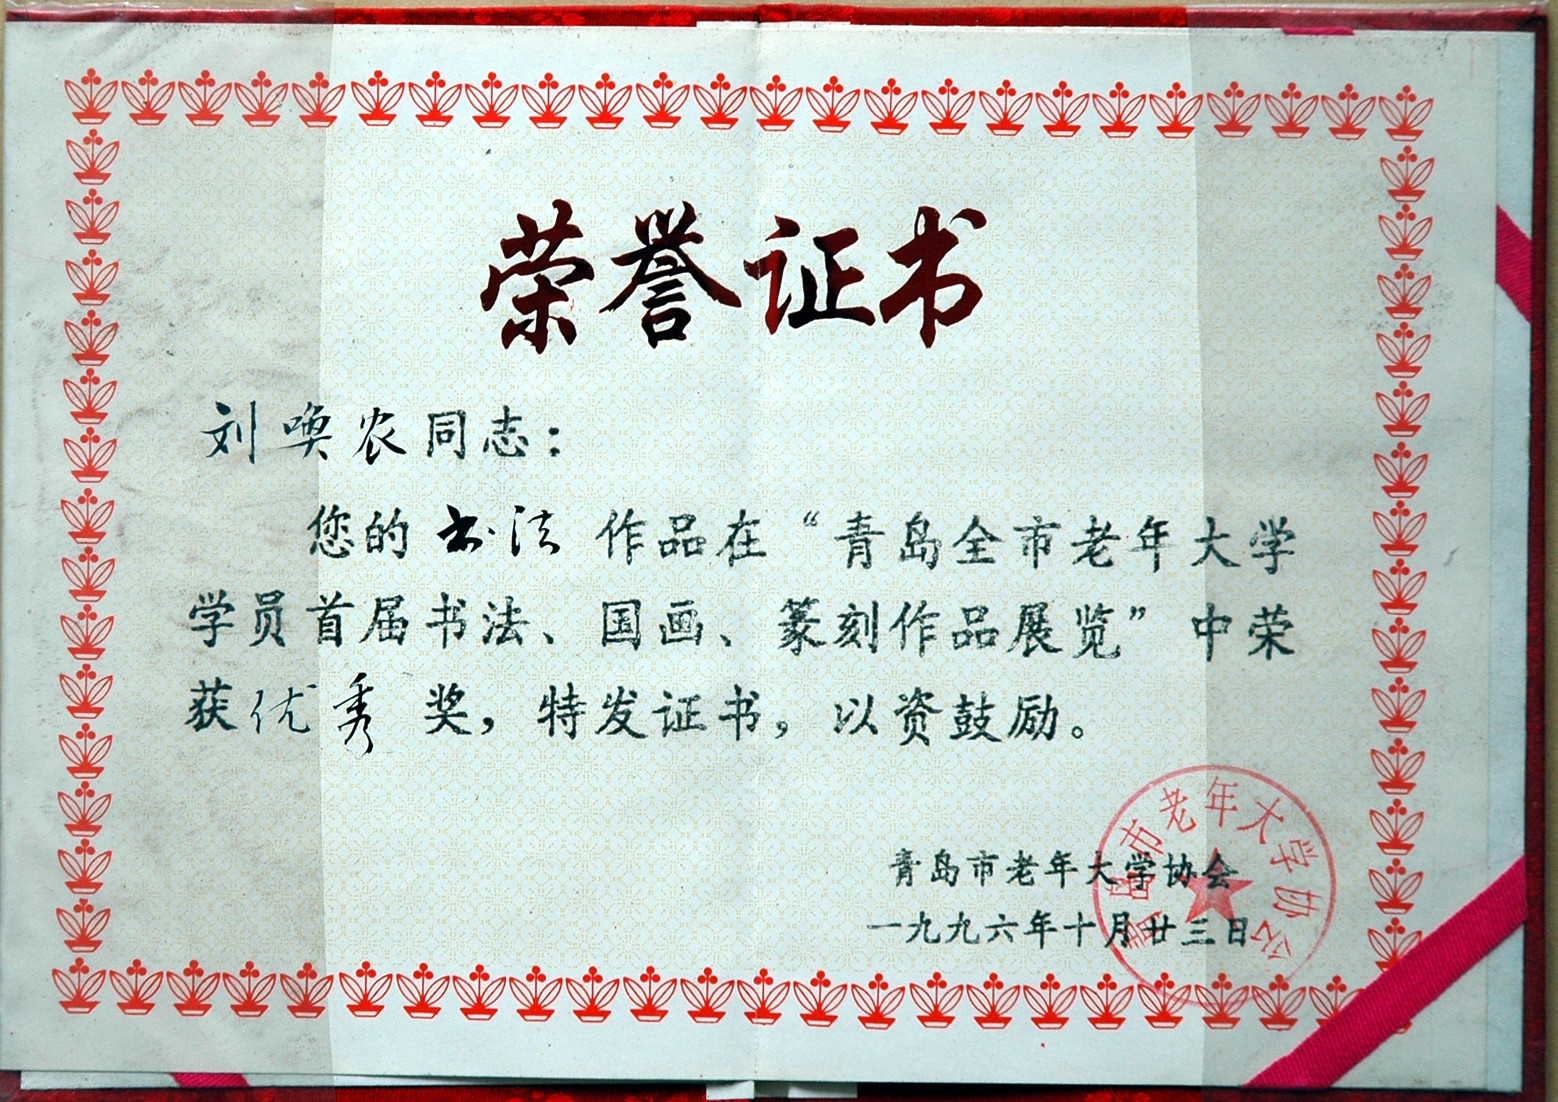 荣誉证书
刘唤农同志：
您的书法作品在“青岛全市老年大学
学员首届书法、国画、篆刻作品展览”中荣
获优秀奖，特发证书，以资鼓励。
青岛市老年大学协会
一九九六年十月廿三日
青岛市老年大学协会